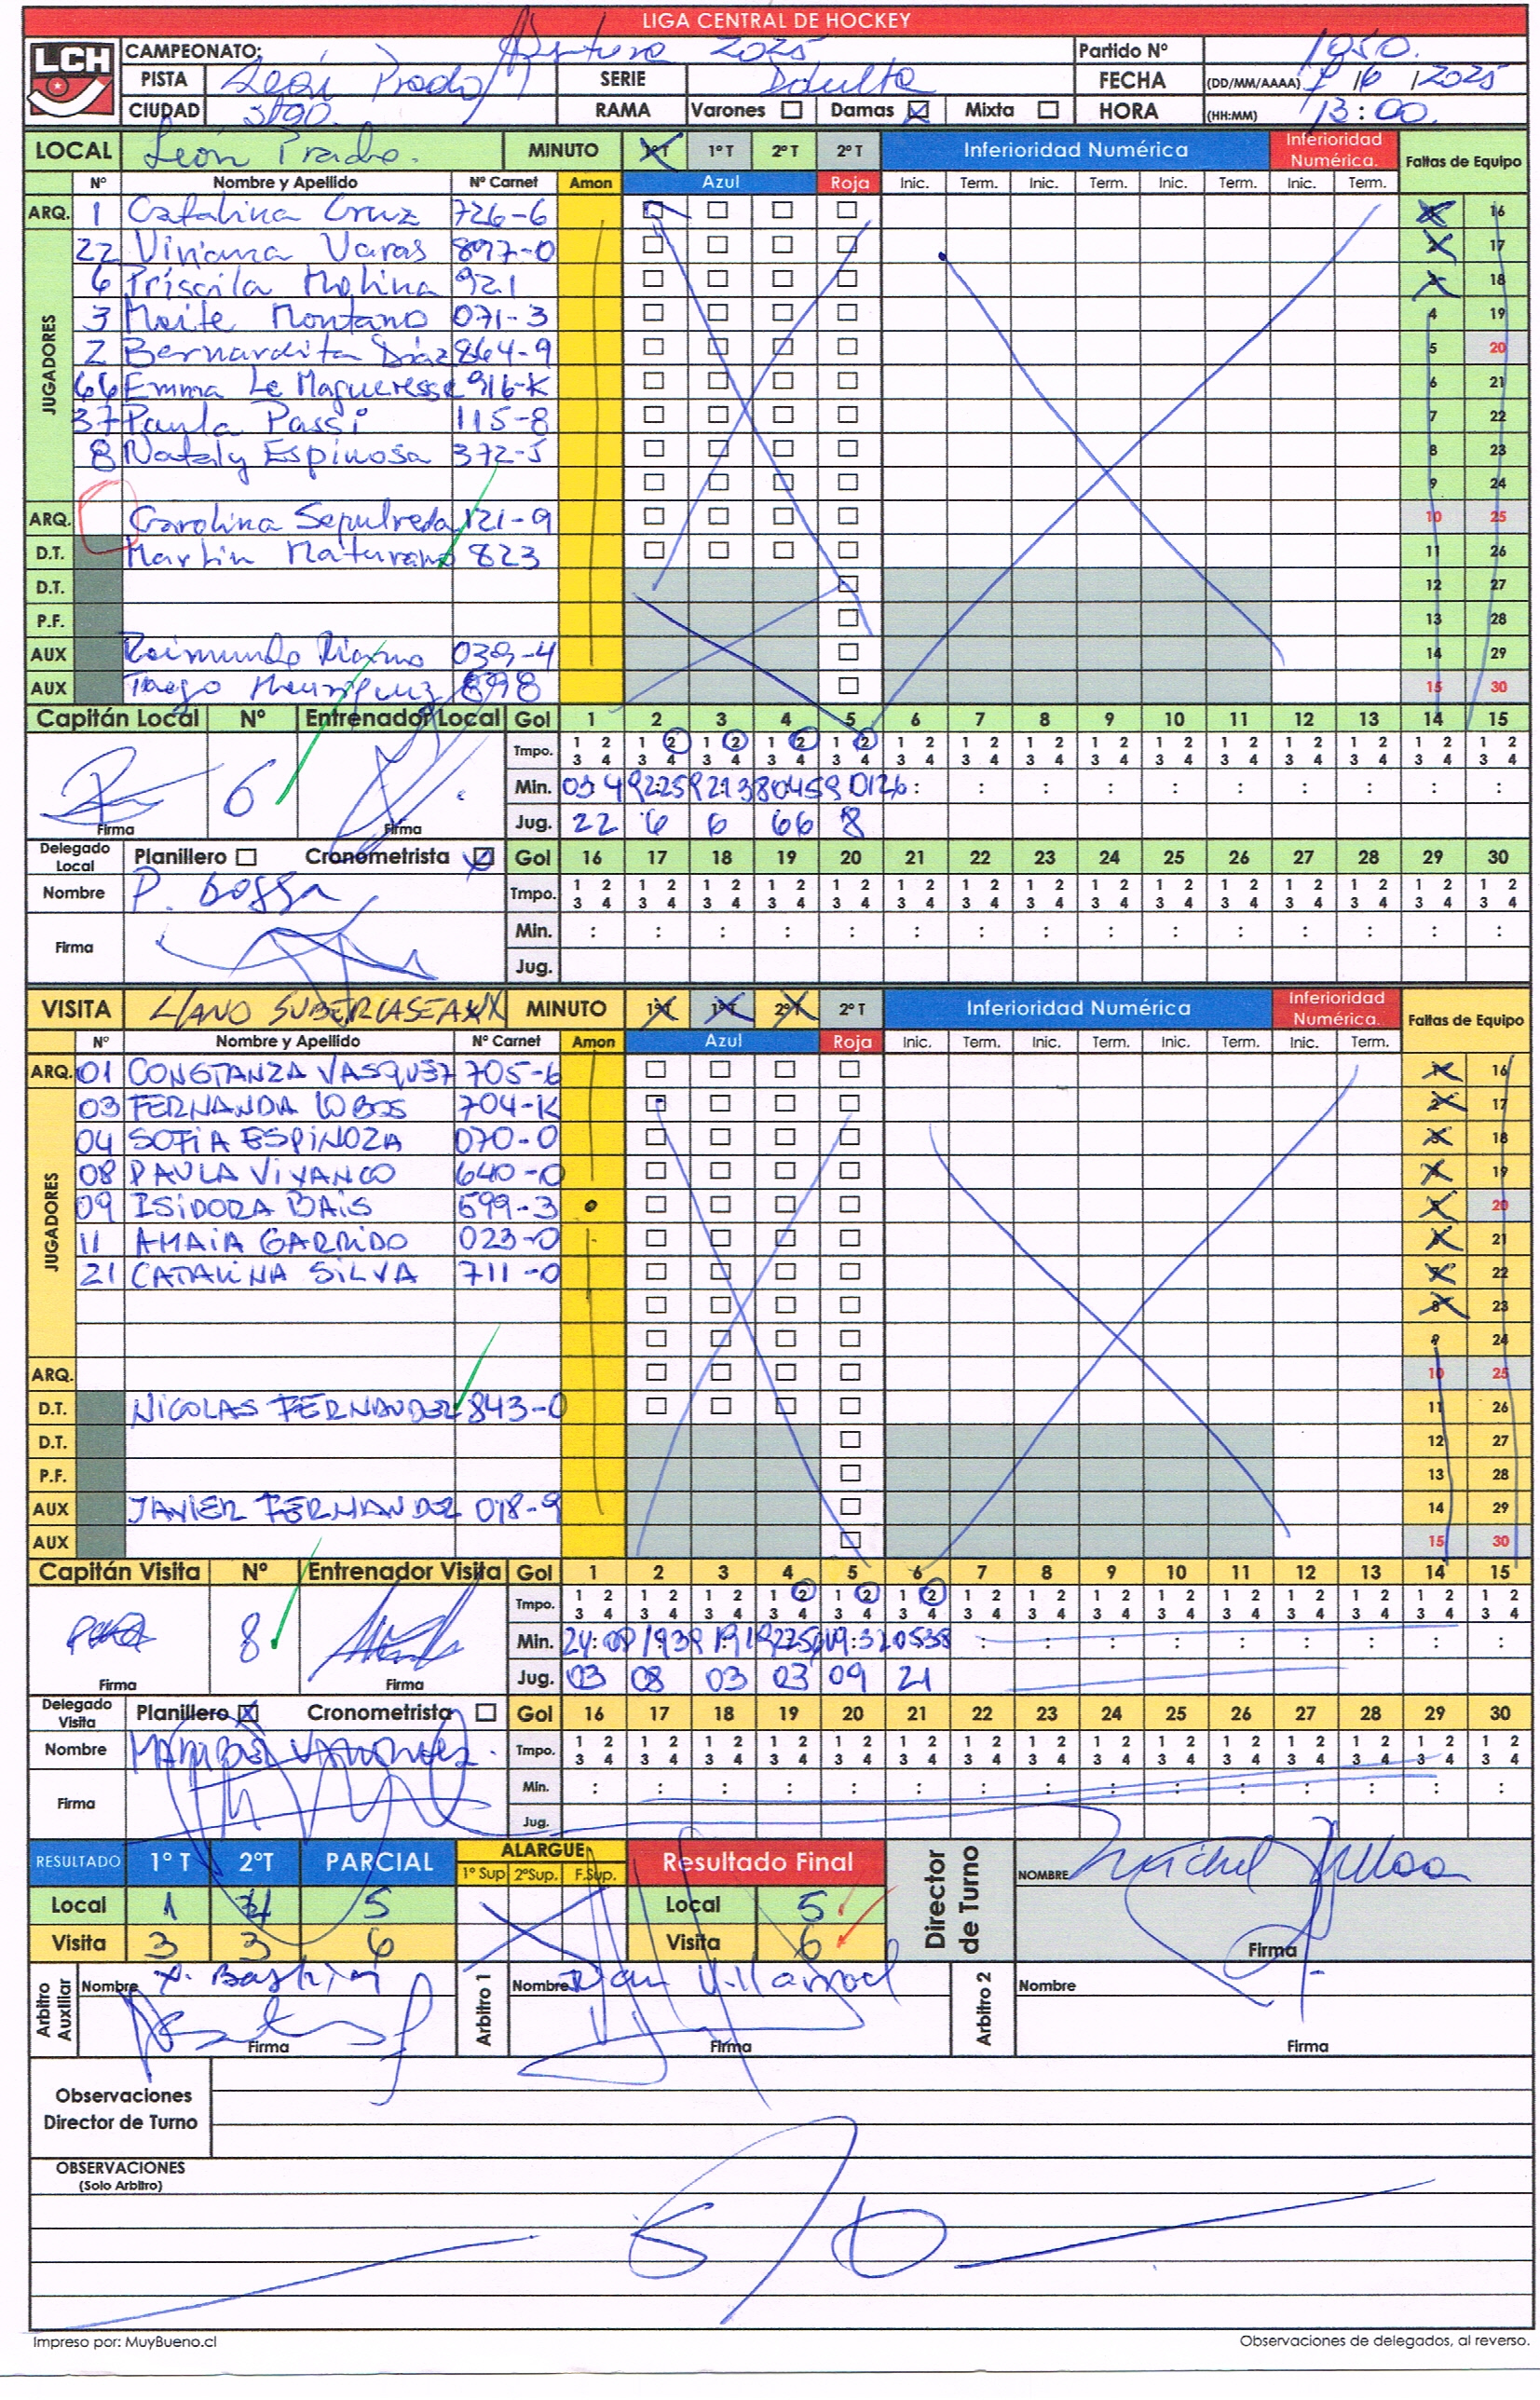 LIGA CENTRAL DE HOCKEY
LCH
CAMPEONATO: Apertura 2025 Partido Nº 1050.
PISTA León Prado SERIE Adulta FECHA (DD/MM/AAAA) /6 /2025
CIUDAD Stgo. RAMA Varones ☐ Damas ☒ Mixta ☐ HORA (HH:MM) 13:00.
LOCAL León Prado. MINUTO 1ºT 1ºT 2ºT 2ºT Inferioridad Numérica Inferioridad Numérica. Faltas de Equipo
Nº Nombre y Apellido Nº Carnet Amon Azul Roja Inic. Term. Inic. Term. Inic. Term. Inic. Term.
ARQ. 1 Catalina Cruz 726-6 ☐ ☐ ☐ ☐ 1 16
JUGADORES
22 Viviana Varas 897-0 ☐ ☐ ☐ ☐ 2 17
6 Priscila Molina 921 ☐ ☐ ☐ ☐ 3 18
3 Maite Montano 071-3 ☐ ☐ ☐ ☐ 4 19
2 Bernardita Díaz 864-9 ☐ ☐ ☐ ☐ 5 20
66 Emma Le Magueresse 916-K ☐ ☐ ☐ ☐ 6 21
37 Paula Passi 115-8 ☐ ☐ ☐ ☐ 7 22
8 Nataly Espinosa 372-5 ☐ ☐ ☐ ☐ 8 23
☐ ☐ ☐ ☐ 9 24
ARQ. Carolina Sepulveda 121-9 ☐ ☐ ☐ ☐ 10 25
D.T. Martin Maturana 823 ☐ ☐ ☐ ☐ 11 26
D.T. ☐ 12 27
P.F. ☐ 13 28
AUX Raimundo 039-4 ☐ 14 29
AUX 898 ☐ 15 30
Capitán Local Nº Entrenador Local Gol 1 2 3 4 5 6 7 8 9 10 11 12 13 14 15
Tmpo. 1 2 3 4 1 2 3 4 1 2 3 4 1 2 3 4 1 2 3 4 1 2 3 4 1 2 3 4 1 2 3 4 1 2 3 4 1 2 3 4 1 2 3 4 1 2 3 4 1 2 3 4 1 2 3 4 1 2 3 4
6 Min. : : : : : : : : : :
Firma Firma Jug. 22 6 6 66 8
Delegado Local Planillero ☐ Cronometrista ☒ Gol 16 17 18 19 20 21 22 23 24 25 26 27 28 29 30
Nombre P. Tmpo. 1 2 3 4 1 2 3 4 1 2 3 4 1 2 3 4 1 2 3 4 1 2 3 4 1 2 3 4 1 2 3 4 1 2 3 4 1 2 3 4 1 2 3 4 1 2 3 4 1 2 3 4 1 2 3 4 1 2 3 4
Firma Min. : : : : : : : : : : : : : : :
Jug.
VISITA LLANO SUBERCASEAUX MINUTO 1ºT 1ºT 2ºT 2ºT Inferioridad Numérica Inferioridad Numérica. Faltas de Equipo
Nº Nombre y Apellido Nº Carnet Amon Azul Roja Inic. Term. Inic. Term. Inic. Term. Inic. Term.
ARQ. 01 CONSTANZA VASQUEZ 705-6 ☐ ☐ ☐ ☐ 1 16
JUGADORES
03 FERNANDA LOBOS 704-K ☐ ☐ ☐ ☐ 2 17
04 SOFIA ESPINOZA 070-0 ☐ ☐ ☐ ☐ 3 18
08 PAULA VIVANCO 640-0 ☐ ☐ ☐ ☐ 4 19
09 ISIDORA BAIS 599-3 ☐ ☐ ☐ ☐ 5 20
11 AMAIA GARRIDO 023-0 ☐ ☐ ☐ ☐ 6 21
21 CATALINA SILVA 711-0 ☐ ☐ ☐ ☐ 7 22
☐ ☐ ☐ ☐ 8 23
☐ ☐ ☐ ☐ 9 24
ARQ. ☐ ☐ ☐ ☐ 10 25
D.T. NICOLAS FERNANDEZ 843-0 ☐ ☐ ☐ ☐ 11 26
D.T. ☐ 12 27
P.F. ☐ 13 28
AUX JAVIER FERNANDEZ 018-9 ☐ 14 29
AUX ☐ 15 30
Capitán Visita Nº Entrenador Visita Gol 1 2 3 4 5 6 7 8 9 10 11 12 13 14 15
Tmpo. 1 2 3 4 1 2 3 4 1 2 3 4 1 2 3 4 1 2 3 4 1 2 3 4 1 2 3 4 1 2 3 4 1 2 3 4 1 2 3 4 1 2 3 4 1 2 3 4 1 2 3 4 1 2 3 4 1 2 3 4
8 Min. : : : : : : : : :
Firma Firma Jug. 03 08 03 03 09 21
Delegado Visita Planillero ☒ Cronometrista ☐ Gol 16 17 18 19 20 21 22 23 24 25 26 27 28 29 30
Nombre Tmpo. 1 2 3 4 1 2 3 4 1 2 3 4 1 2 3 4 1 2 3 4 1 2 3 4 1 2 3 4 1 2 3 4 1 2 3 4 1 2 3 4 1 2 3 4 1 2 3 4 1 2 3 4 1 2 3 4 1 2 3 4
Firma Min. : : : : : : : : : : : : : : :
Jug.
RESULTADO 1º T 2ºT PARCIAL ALARGUE 1º Sup 2ºSup. F.Sup. Resultado Final Director de Turno NOMBRE Michel Ulloa
Local 1 4 5 Local 5
Visita 3 3 6 Visita 6 Firma
Arbitro Auxiliar Nombre Arbitro 1 Nombre Dan Villarroel Arbitro 2 Nombre
Firma Firma Firma
Observaciones Director de Turno
OBSERVACIONES
(Solo Arbitro)
S/O
Impreso por: MuyBueno.cl Observaciones de delegados, al reverso.